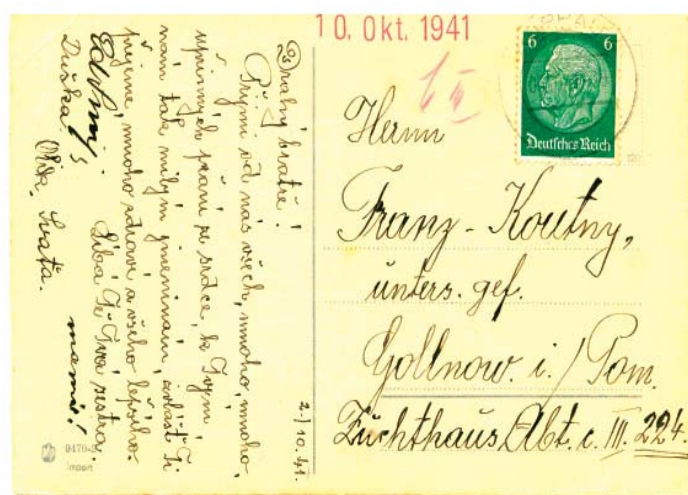 10. Okt. 1941
6 6
Deutsches Reich
Herrn
Franz - Koutny,
unters. gef.
Gollnow. i./Pom.
Zuchthaus Abt. c. III. 224.
2./10.41.
Drahý bratře!
Přijmi od nás všech, mnoho, mnoho,
upřímných přání ze srdce, k Tvým
nám tak milým jmeninám, zvlášť Ti
přejeme, mnoho zdraví a všeho lepšího.
Líbá Tě Tvá sestra
Duška
Svaťa.
mamá!
9470-2
Import